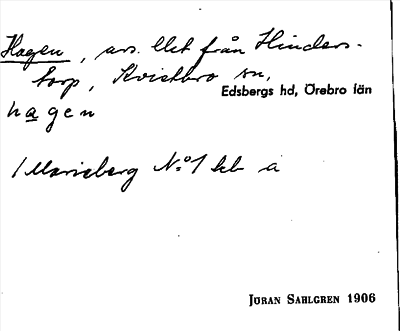 Hagen, avs. Ust från Hinders-
torp, Kvistbro sn,
Edsbergs hd, Örebro län
hagen
/ Marieberg No 1 kb a
JÖRAN SAHLGREN 1906